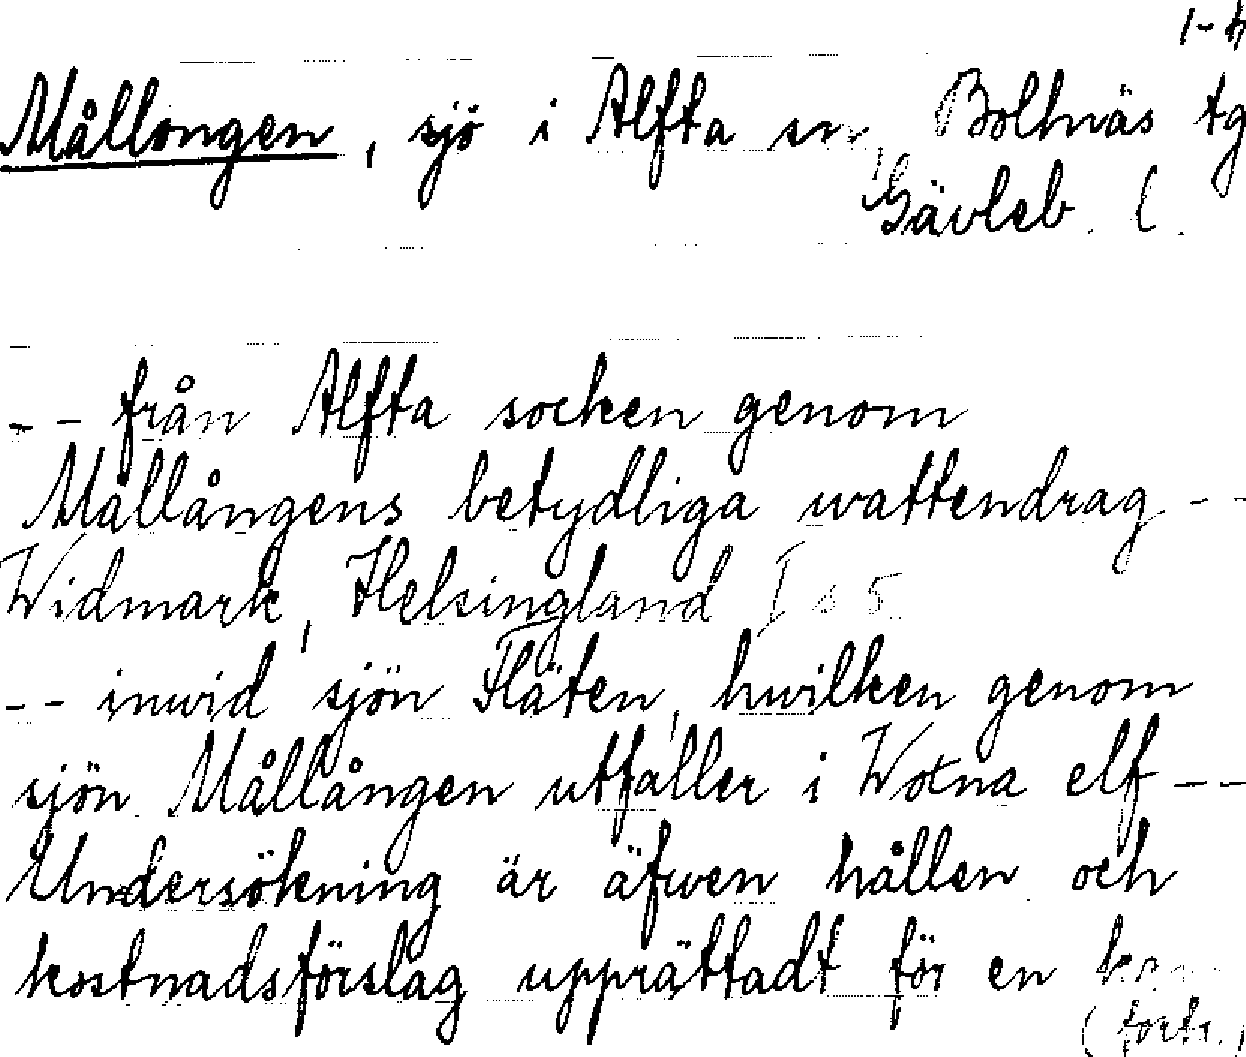 1-h
Mållongen, sjö i Alfta sn, Bollnäs tg
Gävleb. l.
-- från Alfta socken genom
Mållångens betydliga wattendrag --
Widmark, Helsingland I s 5
-- inwid sjön Fläten, hwilken genom
sjön Mållången utfaller i Woxna elf --
Undersökning är äfwen hållen och
kostnadsförslag upprättadt för en
(forts.)